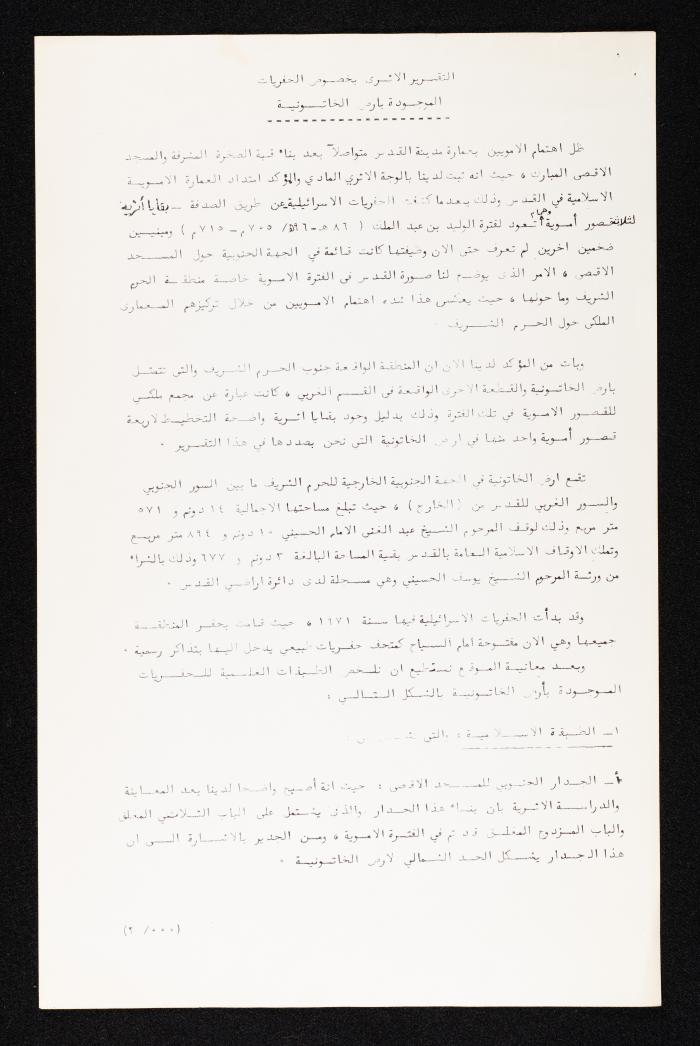 التقرير الاثرى بخصوص الحفريات
الموجودة بارض الخاتونية
ظل اهتمام الامويين بعمارة مدينة القدس متواصلاً بعد بناء قبة الصخرة المشرفة والمسجد
الاقصى المبارك ، حيث انه ثبت لدينا بالوجة الاثري المادي والمؤكد امتداد العمارة الاموية
الاسلامية في القدس وذلك بعدما كشفت الحفريات الاسرائيلية عن طريق الصدفة - بقايا أثرية
لثلاثة قصور أموية تعود لفترة الوليد بن عبد الملك ( ٨٦ هـ - ٩٦هـ / ٧٠٥م - ٧١٥م ) ومبنيين
ضخمين اخرين لم تعرف حتى الان وظيفتها كانت قائمة في الجهة الجنوبية حول المسجد
الاقصى ، الامر الذى يوضح لنا صورة القدس في الفترة الاموية خاصة منطقة الحرم
الشريف وما حولها ، حيث يعكس هذا شدة اهتمام الامويين من خلال تركيزهم المعمارى
الملكى حول الحرم الشريف ٠
وبات من المؤكد لدينا الان ان المنطقة الواقعة جنوب الحرم الشريف والتى تتمثل
بارض الخاتونية والقطعة الاخرى الواقعة في القسم الغربي ، كانت عبارة عن مجمع ملكي
للقصور الاموية في تلك الفترة وذلك بدليل وجود بقايا اثرية واضحة التخطيط لاربعة
قصور أموية واحد منها في ارض الخاتونية التي نحن بصددها في هذا التقرير ٠
تقع ارض الخاتونية في الجهة الجنوبية الخارجية للحرم الشريف ما بين السور الجنوبي
والسور الغربي للقدس من ( الخارج ) ، حيث تبلغ مساحتها الاجمالية ١٤ دونم و ٥٧١
متر مربع وذلك لوقف المرحوم الشيخ عبد الغنى الامام الحسيني ١٠ دونم و ٨٩٤ متر مربع
وتملك الاوقاف الاسلامية العامة بالقدس بقية المساحة البالغة ٣ دونم و ٦٧٧ وذلك بالشراء
من ورثة المرحوم الشيخ يوسف الحسيني وهي مسجلة لدى دائرة اراضي القدس ٠
وقد بدأت الحفريات الاسرائيلية فيها سنة ١٦٧١ ، حيث قامت بحفر المنطقة
جميعها وهي الان مفتوحة امام السياح كمتحف حفريات طبيعي يدخل اليها بتذاكر رسمية ٠
وبعد معاينة الموقع نستطيع ان نلخص الطبقات العلمية للحفريات
الموجودة بأرض الخاتونية بالشكل التالي :
١- الطبقة الاسلامية : والتى
أ- الجدار الجنوبي للمسجد الاقصى : حيث انة أصبح واضحا لدينا بعد المعاينة
والدراسة الاثرية بان بناء هذا الجدار والذى يشتمل على الباب الثلاثي المغلق
والباب المزدوج المغلق قد تم في الفترة الاموية ، ومن الجدير بالاشارة الى ان
هذا الجدار يشكل الحد الشمالي لارض الخاتونية ٠
(٢ /٠٠٠)